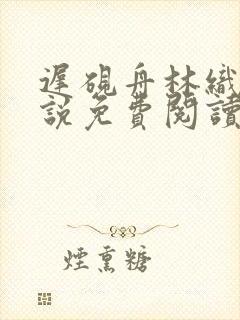 遲硯舟林織
說免費閱讀
煙熏糖